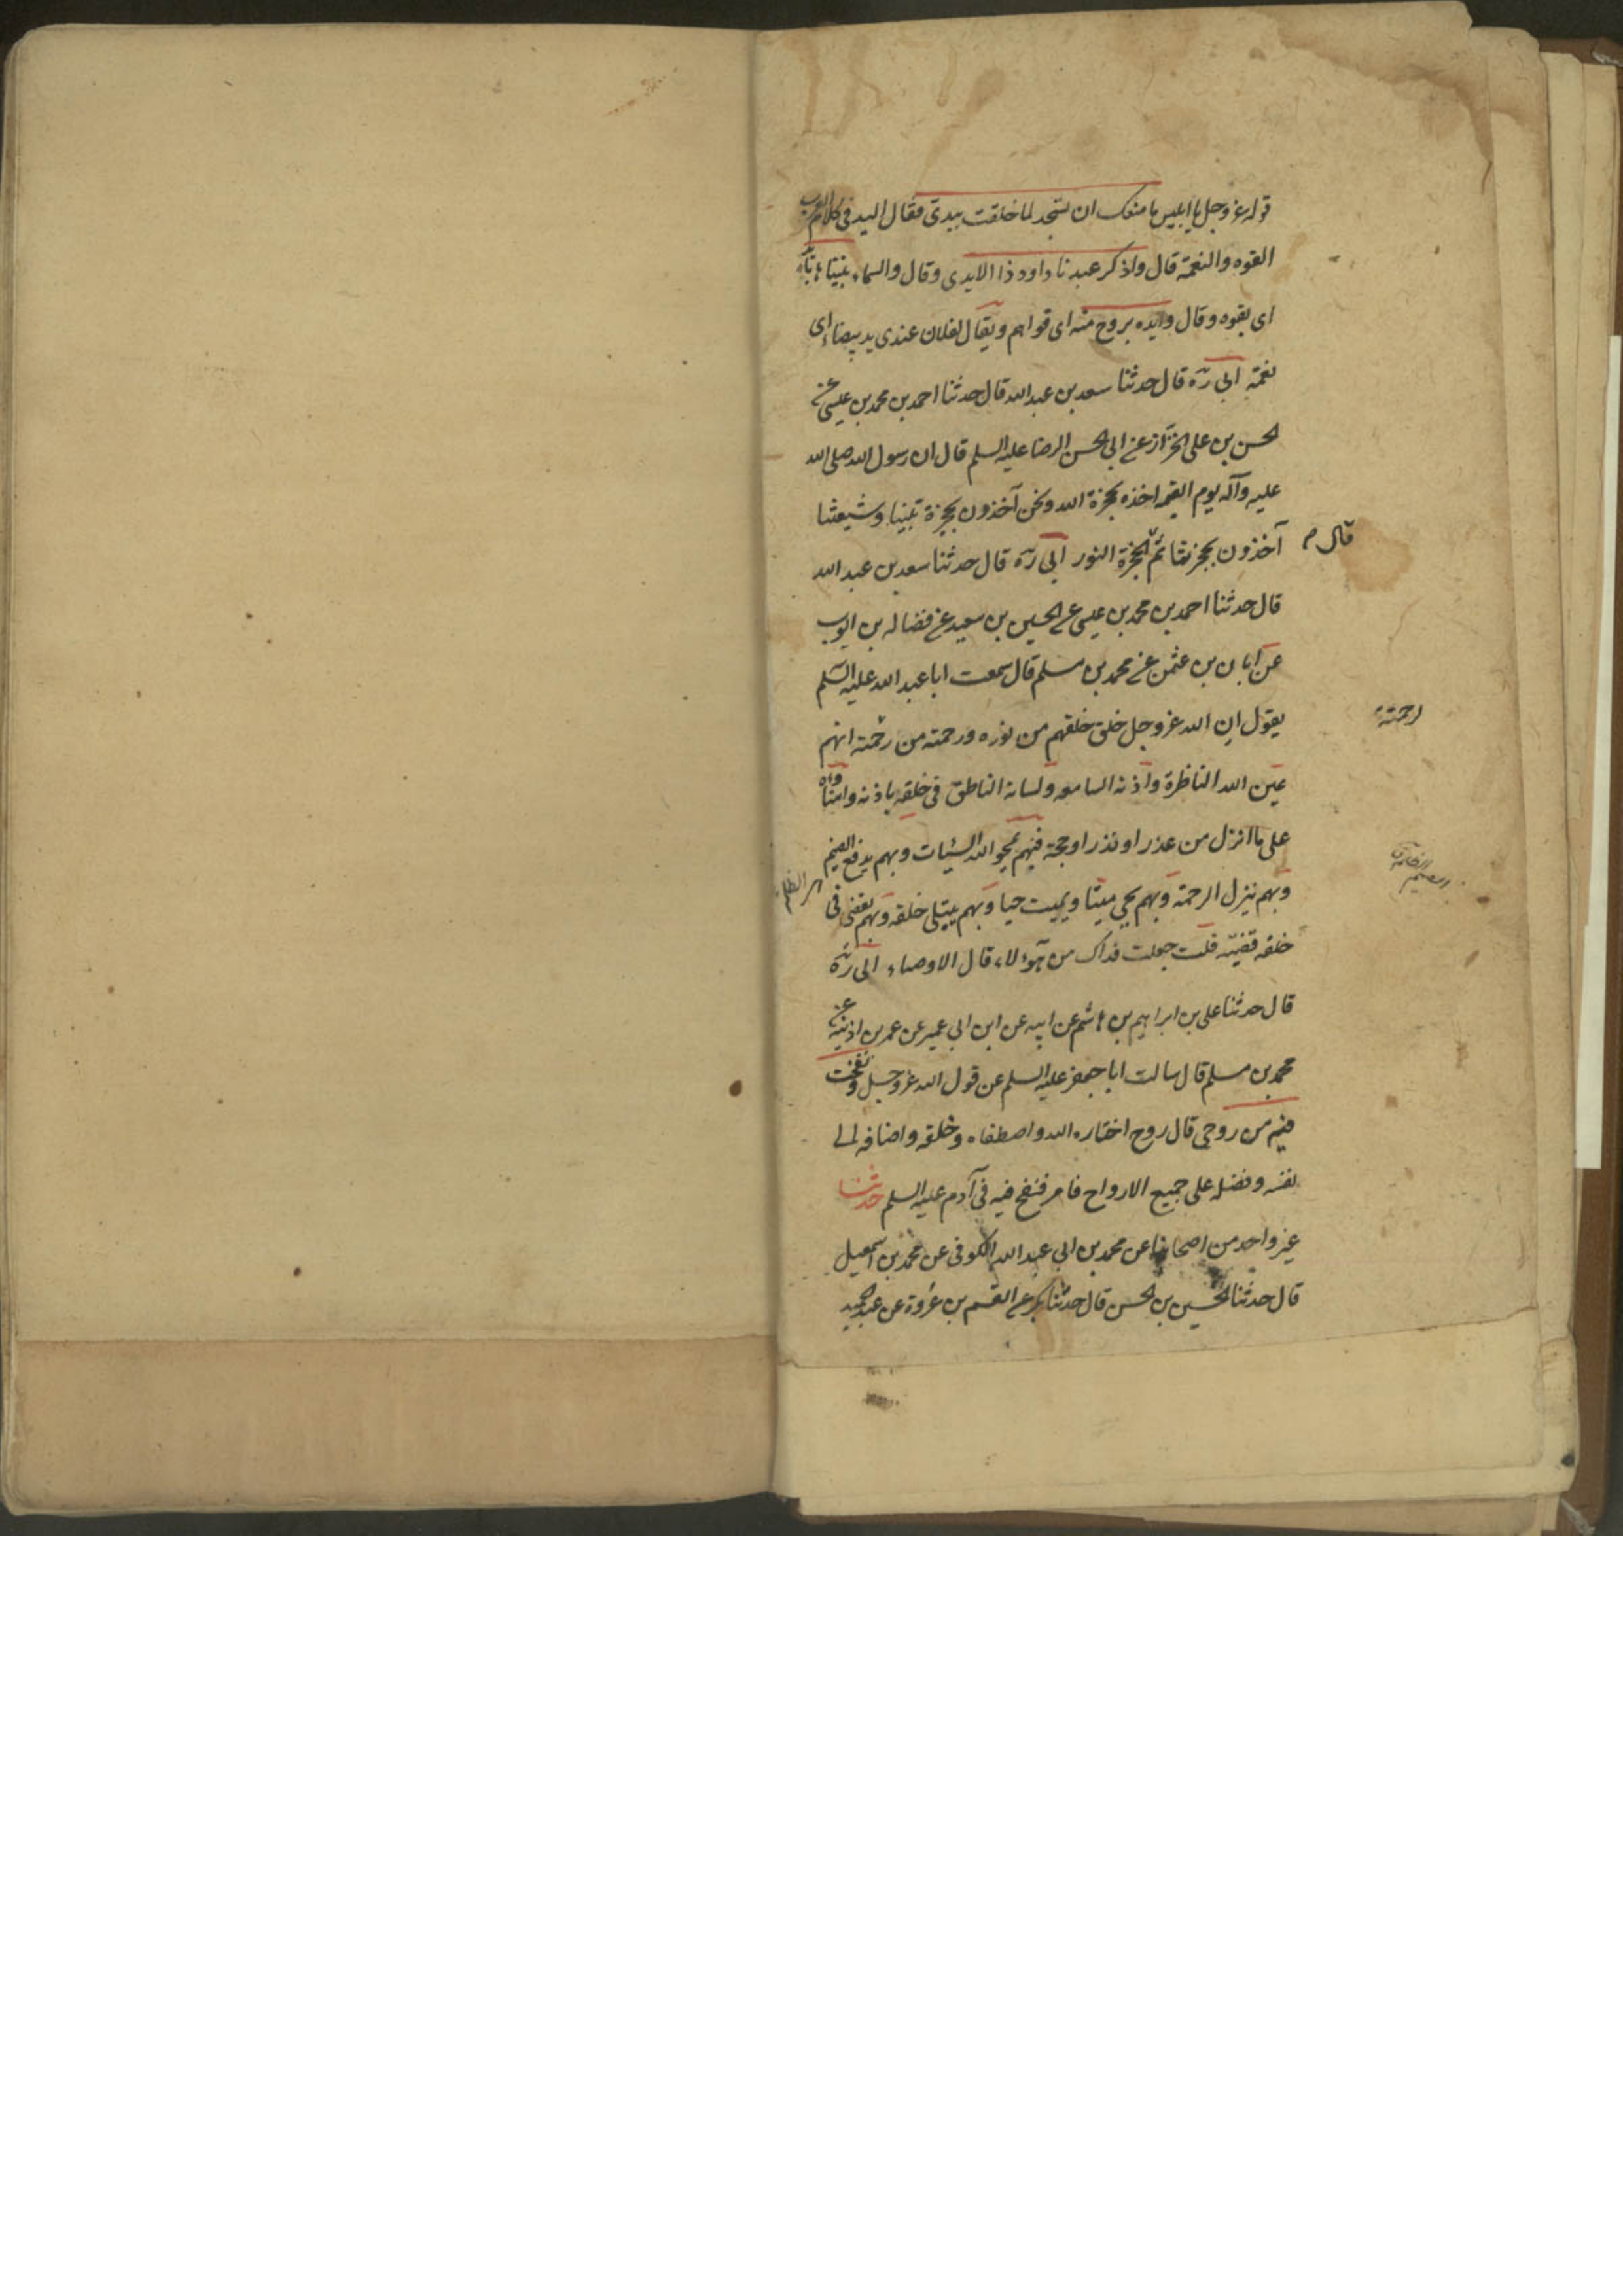 قوله عز وجل يا ابليس ما منعك ان تسجد لما خلقت بيدى فقال اليد فى كلام العرب
القوه والنعمة قال واذكر عبدنا داود ذا الايدى وقال والسماء بنيناها بايد
اى بقوه وقال وايده بروح منه اى قواهم ويقال لفلان عندى يد بيضاء اى
نعمة ابى ره قال حدثنا سعد بن عبد الله قال حدثنا احمد بن محمد بن عيسى عن
الحسن بن على الخزاز عن ابى الحسن الرضا عليه السلم قال ان رسول الله صلى الله
عليه وآله يوم القيمه اخذه بحجزة الله ونحن آخذون بحجزة نبينا وشيعتنا
آخذون بحجزتنا ثم الحجزة النور ابى ره قال حدثنا سعد بن عبد الله
قال
قال حدثنا احمد بن محمد بن عيسى عن الحسين بن سعيد عن فضاله بن ايوب
عن ابان بن عثمن عن محمد بن مسلم قال سمعت ابا عبد الله عليه السلم
يقول ان الله عز وجل خلق خلقهم من نوره ورحمته من رحمته انهم
لرحمته
عين الله الناظرة واذنه السامعه ولسانه الناطق فى خلقه باذنه وامناؤه
على ما انزل من عذر او نذر او حجة فبهم يمحو الله السيئات وبهم يدفع الضيم
وبهم ينزل الرحمة وبهم يحيى ميتا ويميت حيا وبهم يبتلى خلقه وبهم يقضى فى
خلقه قضيته قلت جعلت فداك من هؤلاء قال الاوصياء ابى ره
قال حدثنا على بن ابراهيم بن هاشم عن ابيه عن ابن ابى عمير عن عمر بن اذينه عن
محمد بن مسلم قال سالت ابا جعفر عليه السلم عن قول الله عز وجل ونفخت
فيه من روحى قال روح اختاره الله واصطفاه وخلقه واضافه الى
نفسه وفضله على جميع الارواح فامر فنفخ فيه فى آدم عليه السلم حدثنا
غير واحد من اصحابنا عن محمد بن ابى عبد الله الكوفى عن محمد بن اسمعيل
قال حدثنا الحسين بن الحسن قال حدثنا بكر عن القسم بن عروة عن عبد الحميد